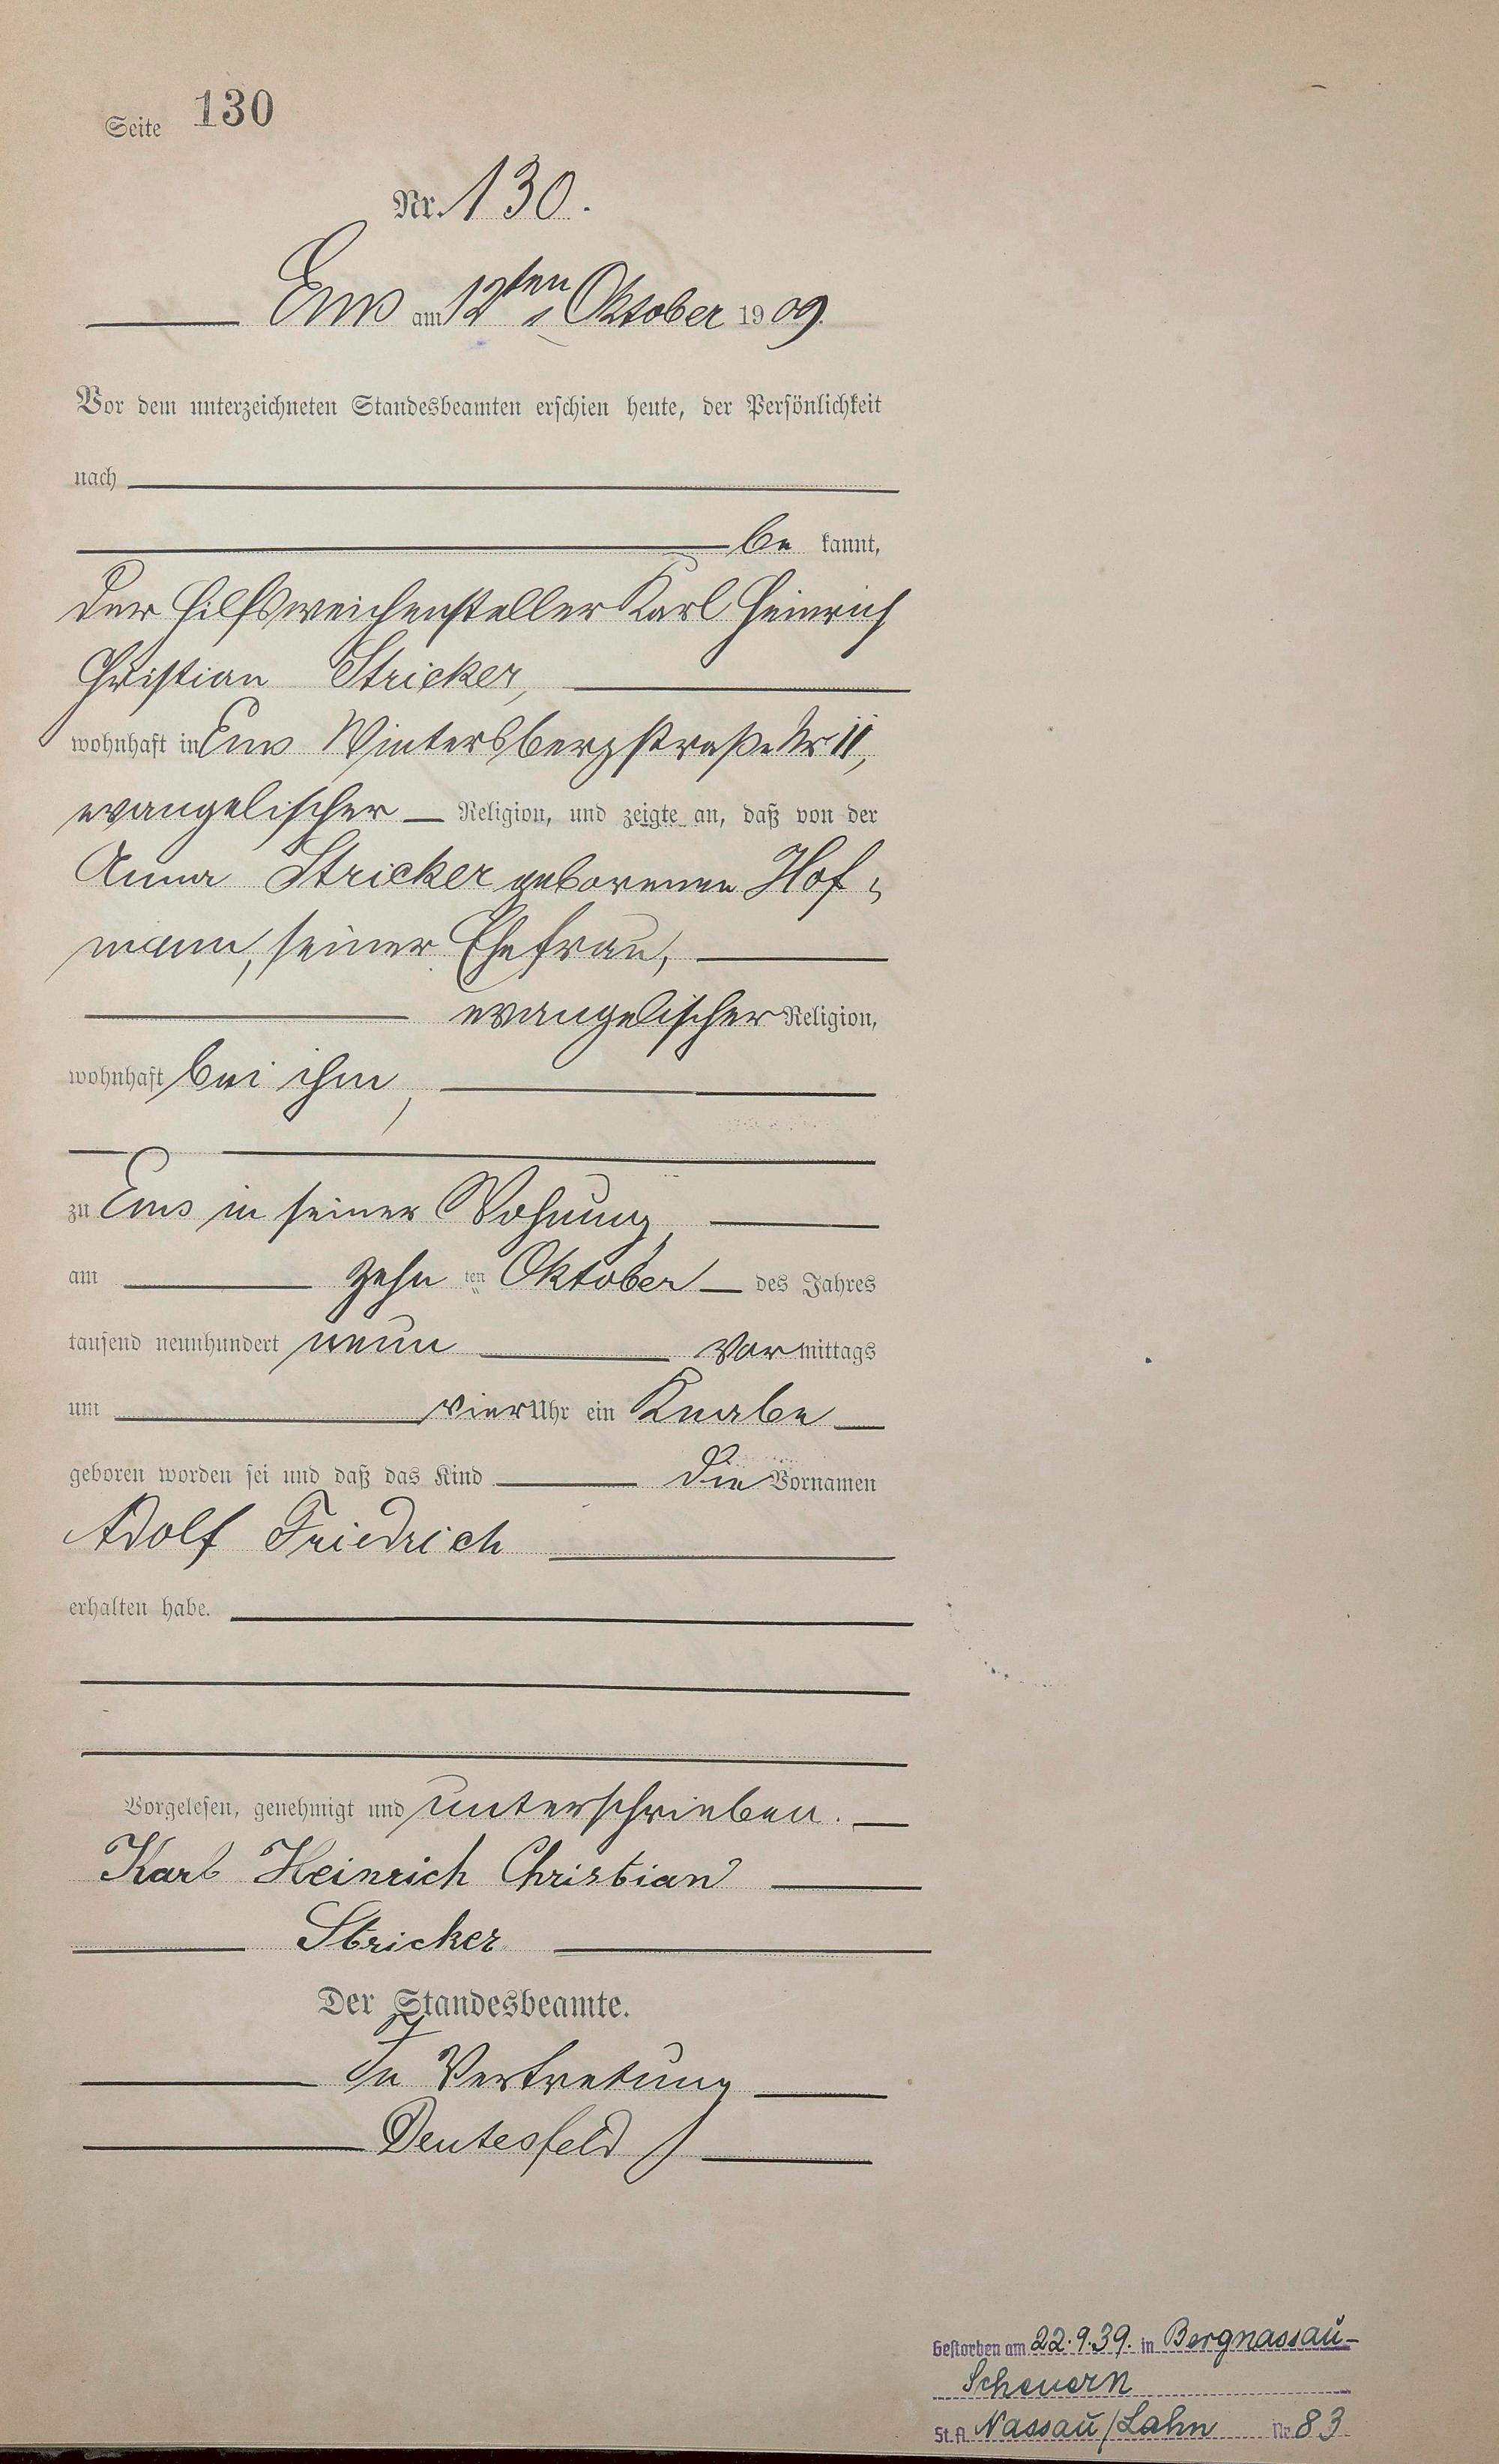 Seite 130
Nr. 130.
Ems am 12ten Oktober 1909.
Vor dem unterzeichneten Standesbeamten erschien heute, der Persönlichkeit
nach
be kannt,
der Hilfsweichensteller Karl Heinrich
Christian Stricker,
wohnhaft in Ems Wintersbergstraße Nr 11,
evangelischer Religion, und zeigte an, daß von der
Anna Stricker geborenen Hof-
mann, seiner Ehefrau,
evangelischer Religion,
wohnhaft bei ihm,
zu Ems in seiner Wohnung,
am zehn ten Oktober des Jahres
tausend neunhundert neun Vor mittags
um vier Uhr ein Knabe
geboren worden sei und daß das Kind die Vornamen
Adolf Friedrich
erhalten habe.
Vorgelesen, genehmigt und unterschrieben.
Karl Heinrich Christian
Stricker
Der Standesbeamte.
In Vertretung
Deutesfeld
Gestorben am 22.9.39. in Bergnassau-
Scheuern
St.A. Nassau/Lahn Nr. 83